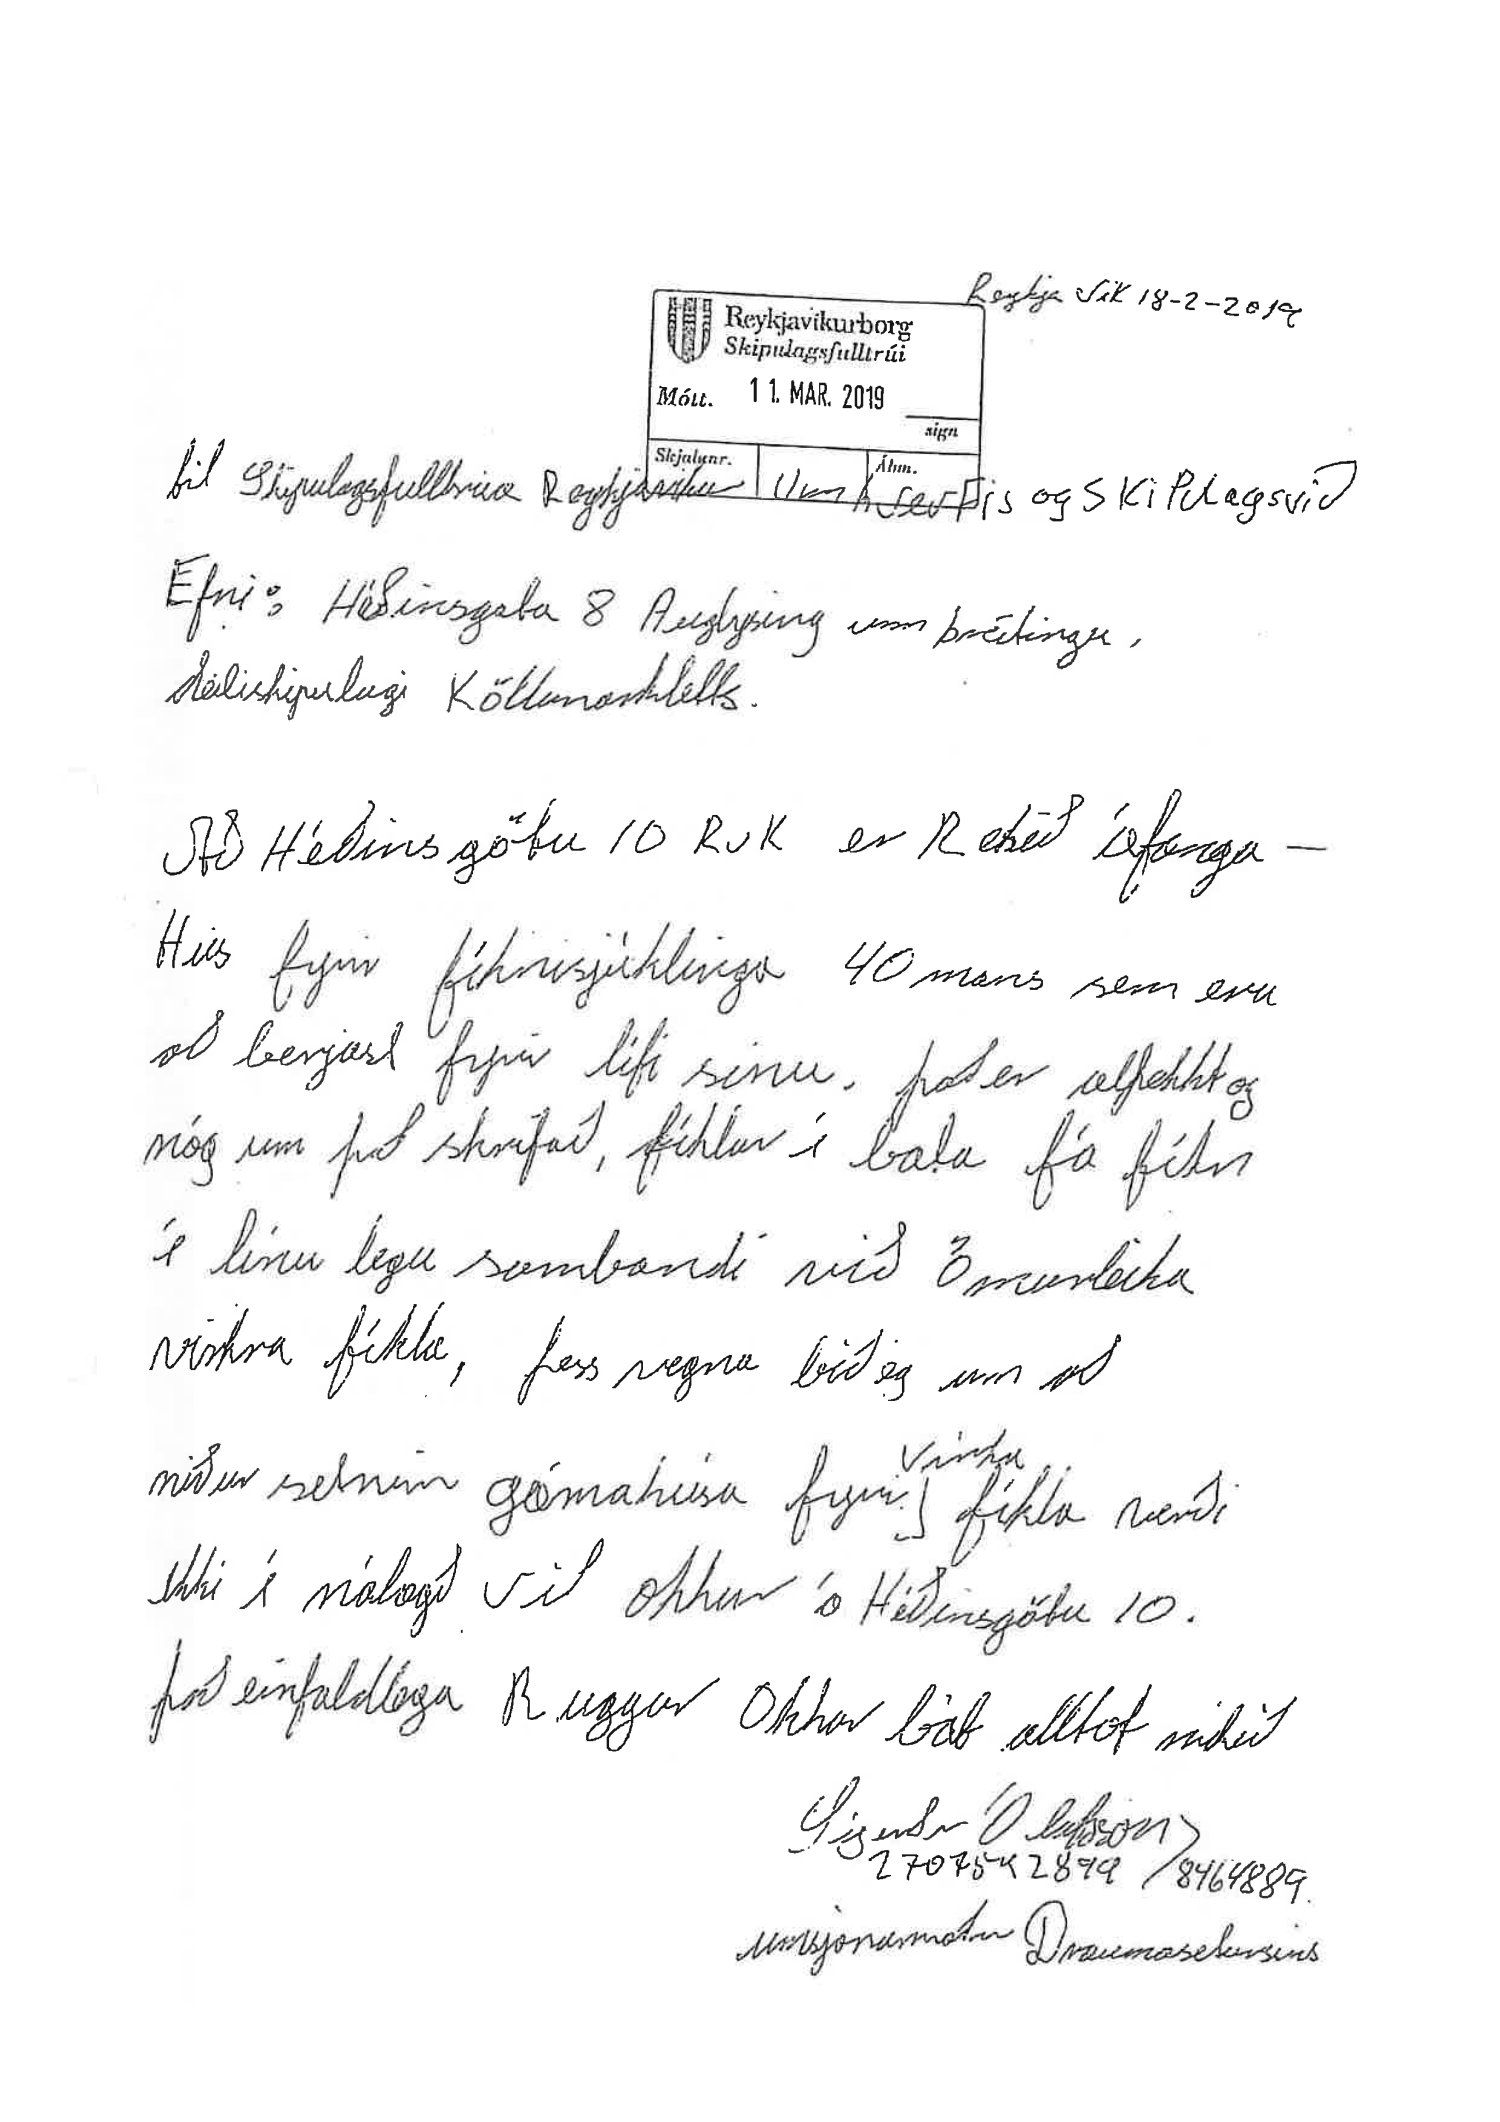 Reykja vík 18-2-2019
Reykjavíkurborg
Skipulagsfulltrúi
Mótt. 11. MAR. 2019
sign
Skjalanr. Áhm.
til Skipulagsfulltrúa Reykjavíkur Umhverfis og Skipulagsvið
Efni: Héðinsgata 8 Auglýsing um breitingu,
deiliskipulagi Köllunarkletts.
Að Héðinsgötu 10 RvK er Rekið áfanga-
Hús fyrir fíknisjúklinga 40 mans sem eru
að berjast fyrir lífi sínu. það er alþekkt og
nóg um það skrifað, fíklar í bata fá fíkn
í línu legu sambandi við Ömurleika
virkra fíkla, þess vegna bið ég um að
niður setning gámahúsa fyrir virka fíkla verði
ekki í nálægð við okkur á Héðinsgötu 10.
það einfaldlega Ruggar Okkar bát alltof mikið
Sigurður Ólafsson
270754 2899 / 8464889.
umsjónarmaður Draumasetursins